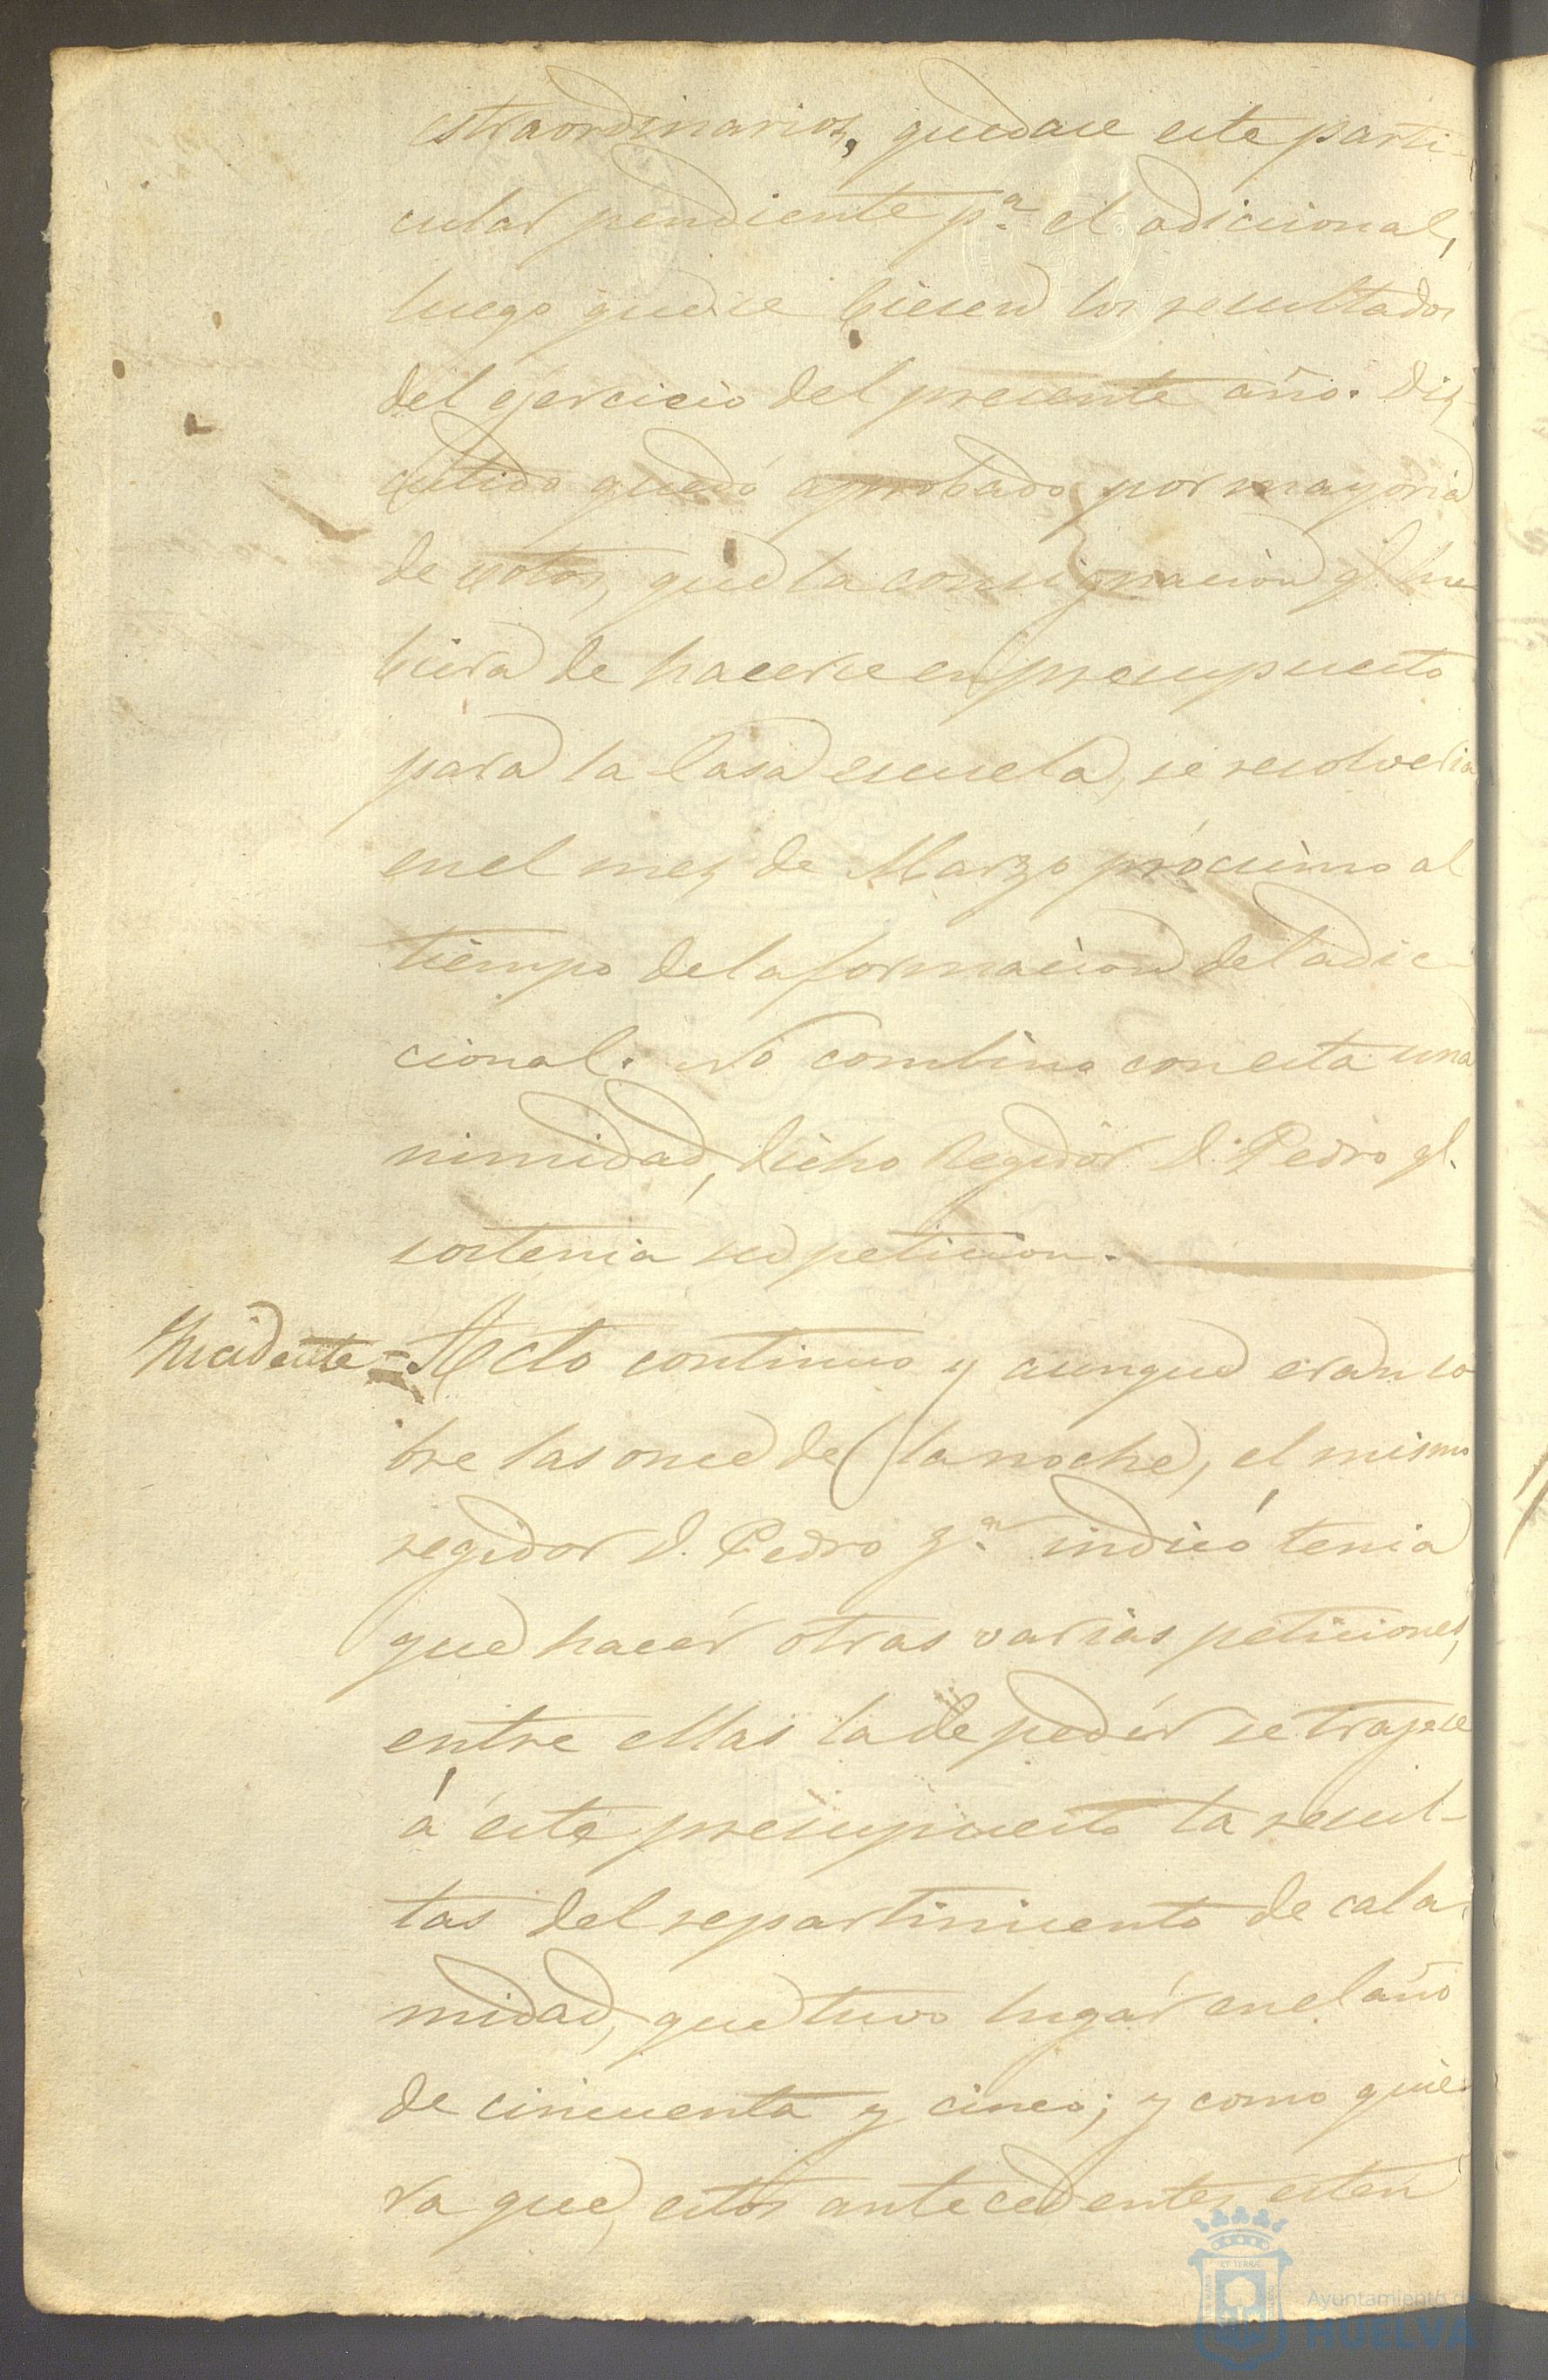 estraordinarios, quedase este parti-
cular pendiente p.ª el adicional,
luego que se biesen los resultados
del ejercicio del presente año. Dis-
cutido quedó aprobado por mayoria
de votos, que la consignacion q.e hu
biera de hacerse en presupuesto
para la Casa escuela, se resolveria
en el mes de Marzo prócsimo al
tiempo de la formacion del adic-
cional. No combino con esta una
nimidad, dicho Regidor D. Pedro q.e
sostenia su peticion.
Incidente = Acto continuo y aunque eran so
bre las once de la noche, el mismo
regidor D. Pedro indicó tenia
que hacér otras varias peticiones,
entre ellas la de pedír se trajese
á este presupuesto la resul-
tas del repartimiento de cala-
midad, que tuvo lugár en el año
de cincuenta y cinco; y como quie-
ra que, estos antecedentes esten
Ayuntamiento de
HUELVA